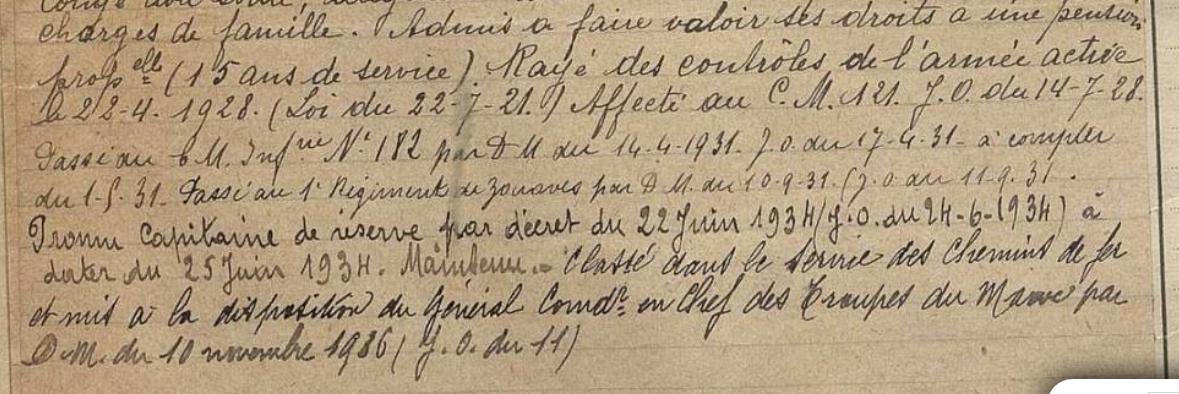 charges de famille. Admis a faire valoir ses droits a une pension
prop elle (15 ans de service). Rayé des contrôles de l'armée active
le 22-4-1928. (Loi du 22-7-21.) Affecté au C.M. 121. J.O. du 14-7-28.
Passé au C M. Inf rie N° 182 par D M du 14-4-1931. J.O. du 17-4-31 - à compter
du 1-5-31. Passé au 1er Régiment de Zouaves par D M. du 10-9-31. (J.O. du 11-9-31.
Promu Capitaine de réserve par décret du 22 Juin 1934 (J.O. du 24-6-1934) à
dater du 25 Juin 1934. Maintenu. - Classé dans le service des Chemins de fer
et mis à la disposition du Général Comdt en Chef des Troupes du Maroc par
D.M. du 10 novembre 1936 (J.O. du 11)